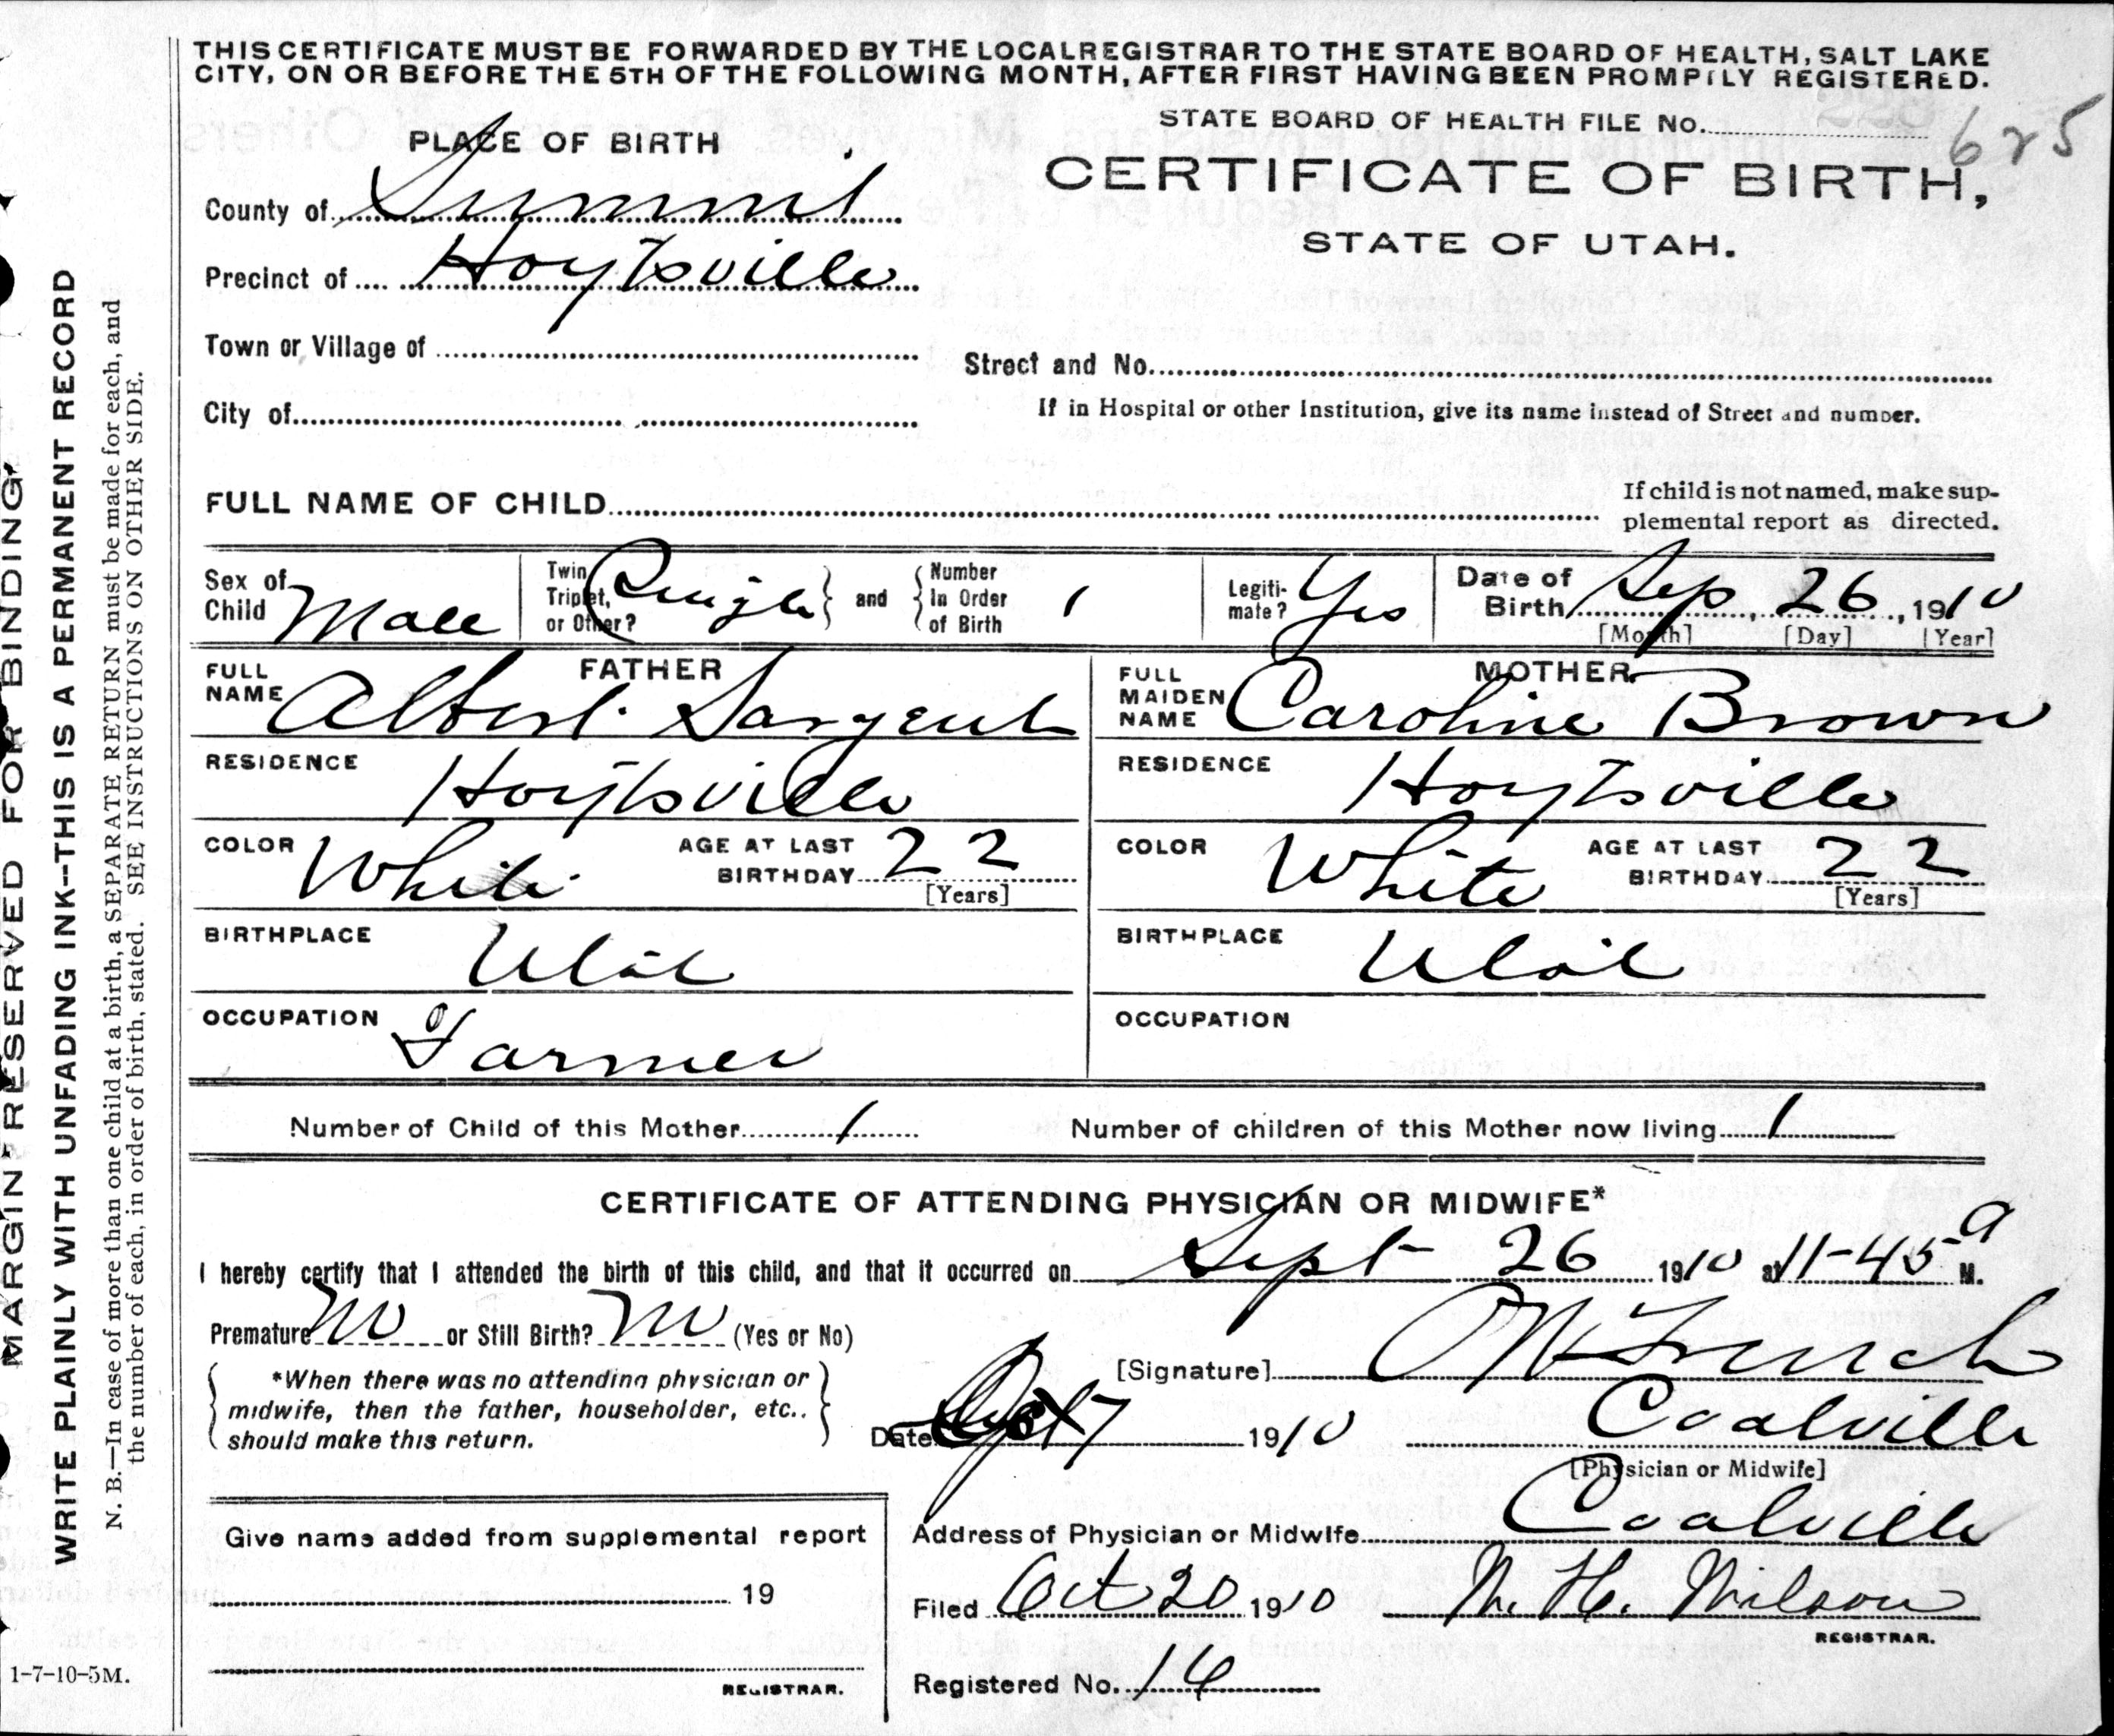 THIS CERTIFICATE MUST BE FORWARDED BY THE LOCAL REGISTRAR TO THE STATE BOARD OF HEALTH, SALT LAKE
CITY, ON OR BEFORE THE 5TH OF THE FOLLOWING MONTH, AFTER FIRST HAVING BEEN PROMPTLY REGISTERED.
STATE BOARD OF HEALTH FILE No. 625
PLACE OF BIRTH
CERTIFICATE OF BIRTH,
STATE OF UTAH.
County of Summit
Precinct of Hoytsville
Town or Village of
Street and No.
City of
If in Hospital or other Institution, give its name instead of Street and number.
FULL NAME OF CHILD
If child is not named, make sup-
plemental report as directed.
Sex of Child Male
Twin, Triplet, or Other? Single and Number In Order of Birth 1
Legiti-mate? Yes
Date of Birth Sep 26, 1910
[Month] [Day] [Year]
FATHER
FULL NAME Albert Sargent
RESIDENCE Hoytsville
COLOR White AGE AT LAST BIRTHDAY 22
[Years]
BIRTHPLACE Utah
OCCUPATION Farmer
MOTHER
FULL MAIDEN NAME Caroline Brown
RESIDENCE Hoytsville
COLOR White AGE AT LAST BIRTHDAY 22
[Years]
BIRTHPLACE Utah
OCCUPATION
Number of Child of this Mother 1 Number of children of this Mother now living 1
CERTIFICATE OF ATTENDING PHYSICIAN OR MIDWIFE*
I hereby certify that I attended the birth of this child, and that it occurred on Sept 26 1910 at 11-45 a M.
Premature No or Still Birth? No (Yes or No)
*When there was no attending physician or
midwife, then the father, householder, etc.,
should make this return.
[Signature] French
Date Oct 7 1910 Coalville
[Physician or Midwife]
Address of Physician or Midwife Coalville
Filed Oct 20 1910 N. H. Wilson
REGISTRAR.
Registered No. 14
Give name added from supplemental report
19
REGISTRAR.
MARGIN RESERVED FOR BINDING
WRITE PLAINLY WITH UNFADING INK--THIS IS A PERMANENT RECORD
N. B.—In case of more than one child at a birth, a SEPARATE RETURN must be made for each, and
the number of each, in order of birth, stated. SEE INSTRUCTIONS ON OTHER SIDE.
1-7-10-5M.